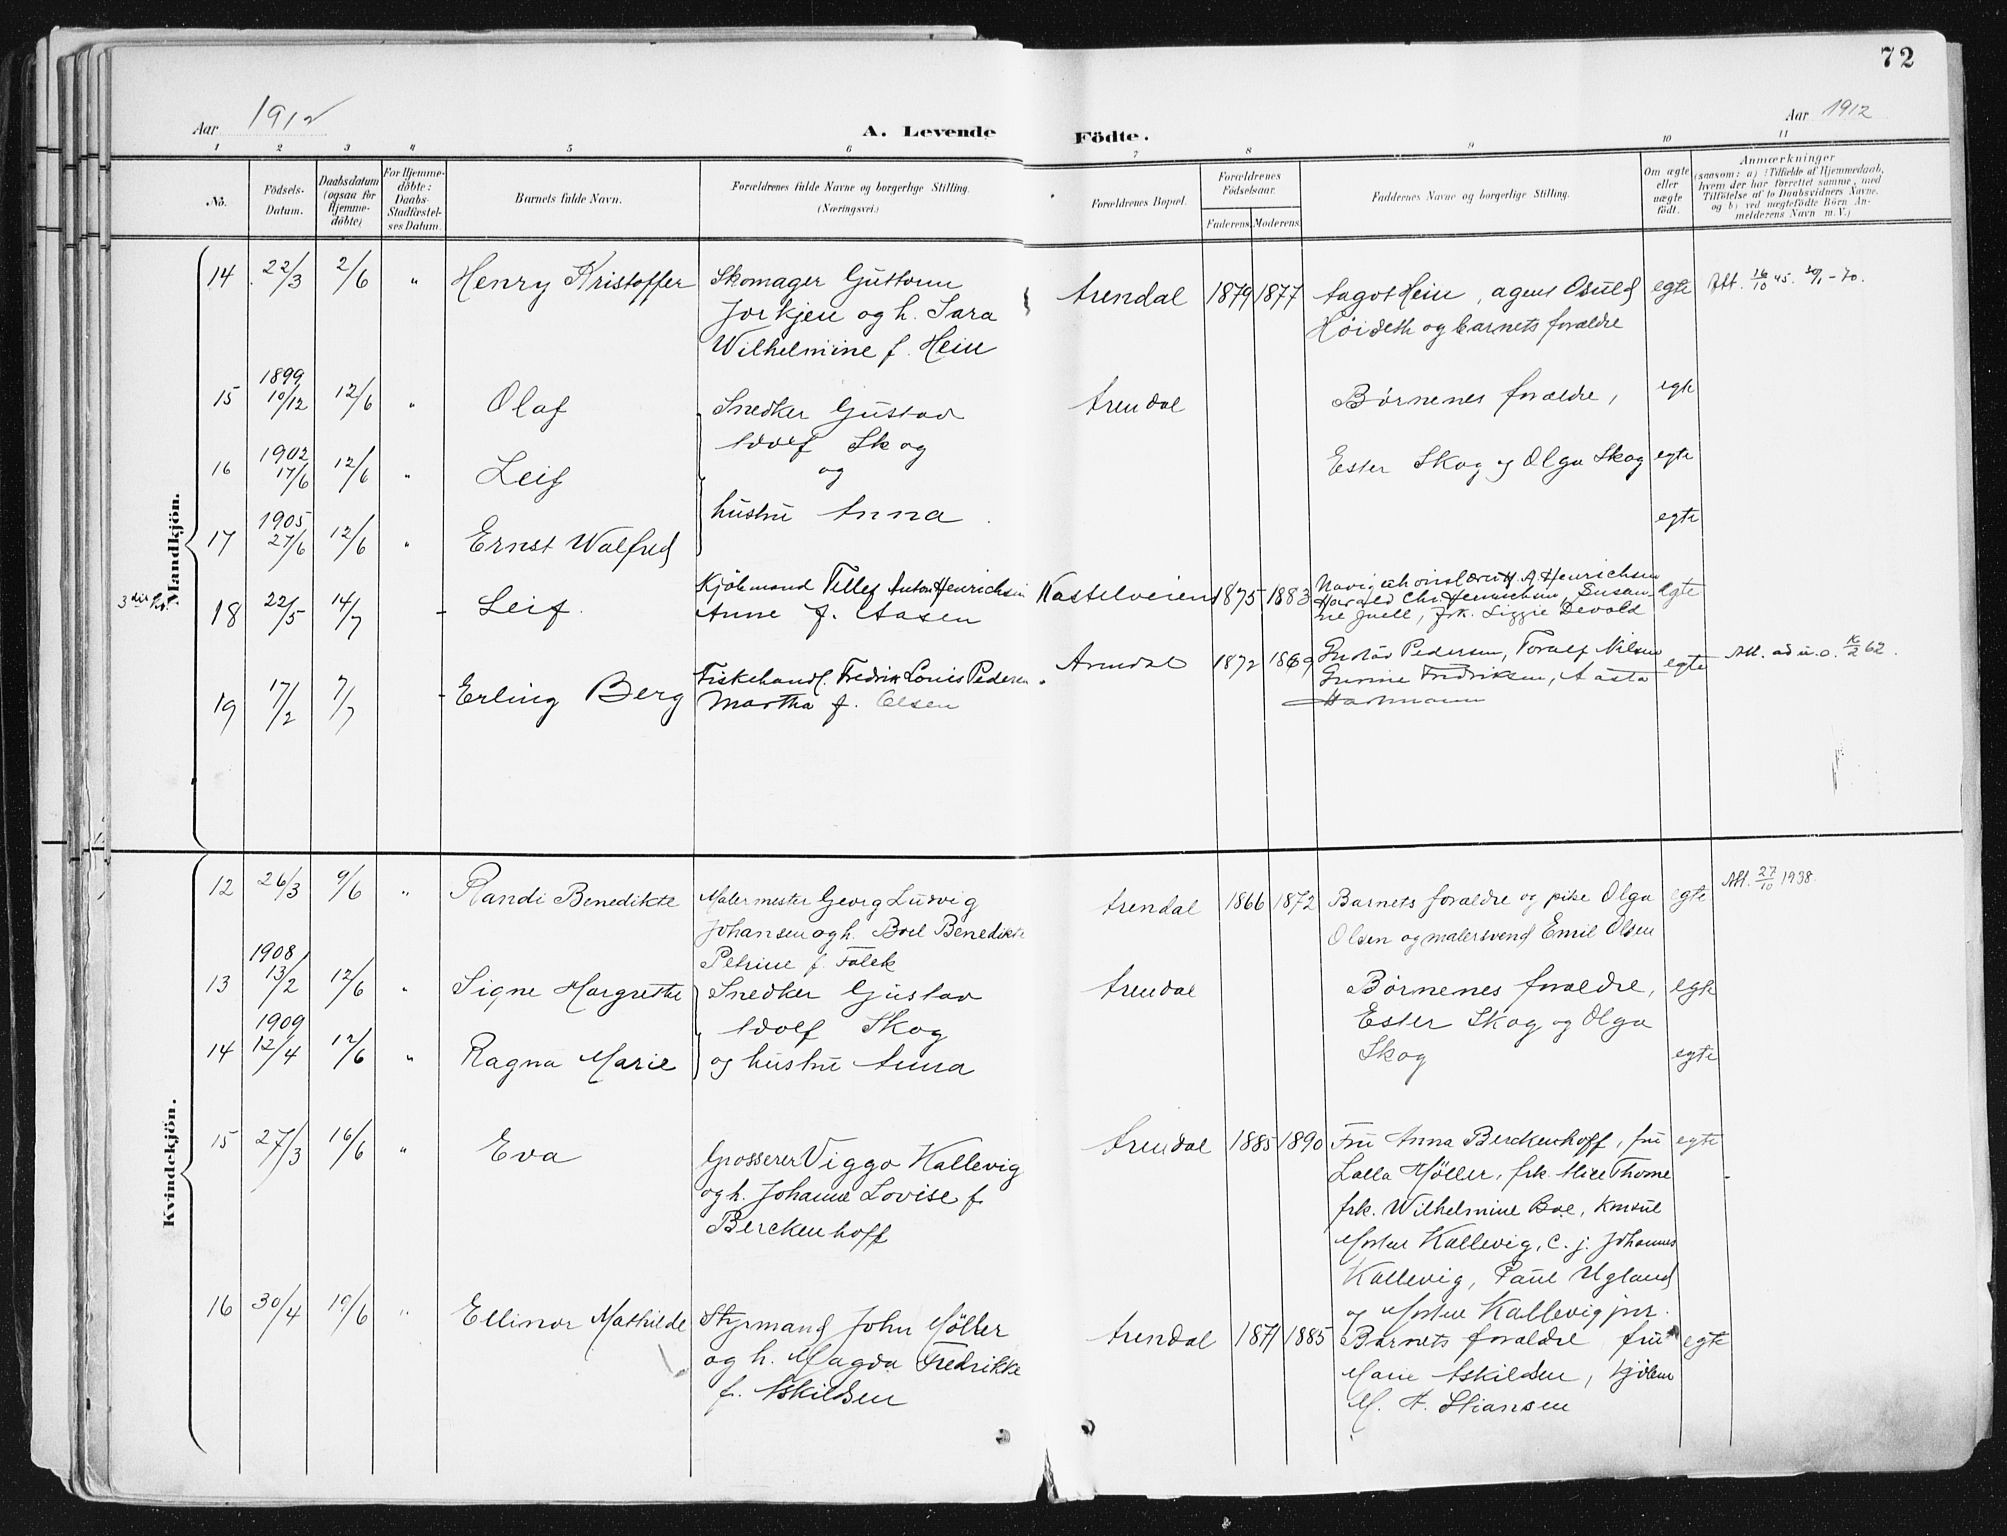 72
Aar 1912
A. Levende Födte.
Aar 1912
1 2 3 4 5 6 7 8 9 10 11
No.
Födsels-
Datum.
Daabsdatum
(ogsaa for
Hjemme-
döbte)
For Hjemme-
döbte:
Daabs-
Stadfæstel-
ses Datum.
Barnets fulde Navn.
Forældrenes fulde Navne og borgerlige Stilling.
(Næringsvei.)
Forældrenes Bopæl.
Forældrenes
Födselsaar.
Faderens. Moderens.
Faddernes Navne og borgerlige Stilling.
Om ægte
eller
uægte
födt.
Anmærkninger
(saasom: a) i Tilfælde af Hjemmedaab,
hvem der har forrettet samme, med
Tilföielse af to Daabsvidners Navne,
og b) ved uægtefödte Börn An-
melderens Navn m. V.)
Mandkjön.
14 22/3 2/6 " Henry Kristoffer
Skomager Guttorm
Jorkjen og h. Sara
Wilhelmine f. Hein
Arendal 1879 1877
Aagot Hein, agent Osuld
Höideth og barnets forældre
egte
Att. 16/10 45. 30/1 - 70.
15 1899 10/12 12/6 " Olaf
Snedker Gustav
Adolf Skog
og
hustru Anna
Arendal
Børnenes forældre,
egte
16 1902 17/6 12/6 " Leif
Ester Skog og Olga Skog
egte
17 1905 27/6 12/6 " Ernst Walfred
egte
18 22/5 14/7 - Leif.
Kjöbmand Tellef Anton Henrichsen
Anne f. Aasen
Kastelveien 1875 1883
Henrichsen
Harald Chr. Henrichsen, Susan
ne Juell, frk. Lizzie Devold
egte
19 17/2 7/7 - Erling Berg
Fiskehandl. Fredrik Louis Pedersen
Martha f. Olsen
Arendal 1872 1869
Gustav Pedersen, Toralf Nilsen
Gunine Fredriksen, Aasta
Hartmann
egte
Att. ad u.o. 62.
Kvindekjön.
12 26/3 9/6 " Randi Benedikte
Malermester Georg Ludvig
Johansen og h. Boel Benedikte
Petrine f. Falck
Arendal 1866 1872
Barnets forældre og pike Olga
Olsen og malersvend Emil Olsen
egte
Att. 27/10 1938.
13 1908 13/2 12/6 " Signe Margrethe
Snedker Gustav
Adolf Skog
og hustru Anna
Arendal
Børnenes forældre,
Ester Skog og Olga
Skog
egte
14 1909 12/4 12/6 " Ragna Marie
egte
15 27/3 16/6 " Eva
Grosserer Viggo Kallevig
og h. Johanne Lovise f.
Berckenhoff
Arendal 1885 1890
Fru Anna Berckenhoff, fru
Lalla Möller, frk. Alice Thorne
frk. Wilhelmine Boe, konsul
Morten Kallevig, C. J. Johannes
Kallevig, Paul Ugland
og Morten Kallevig jnr.
egte
16 30/4 19/6 " Ellinor Mathilde
Styrmand John Möller
og h. Magda Fredrikke
f. Askildsen
Arendal 1871 1885
Barnets forældre fru
Marie Askildsen, kjöbm
M. A. Stiansen
egte